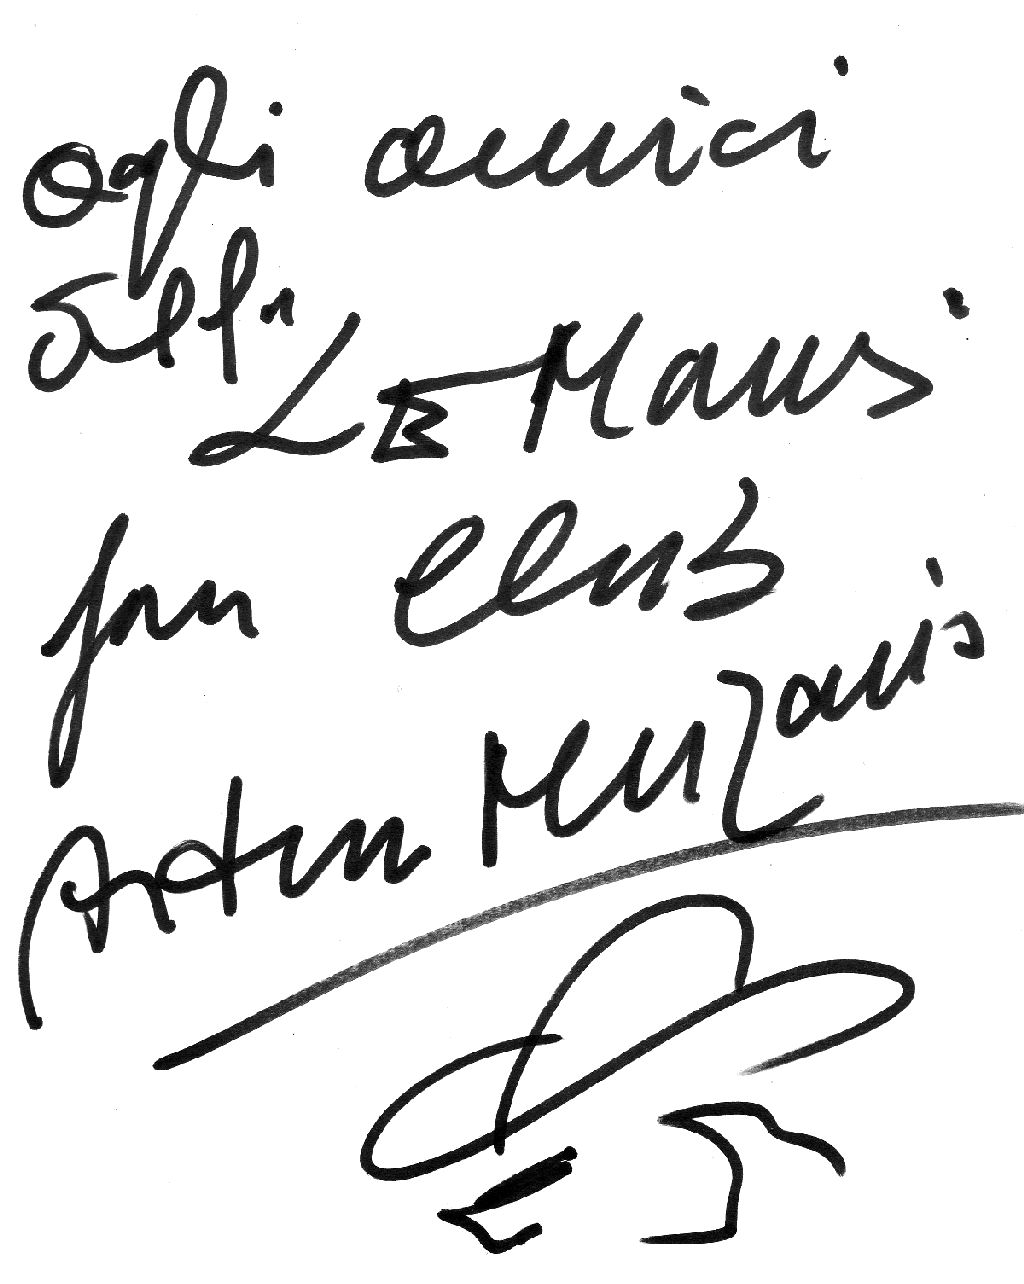 agli amici
della
LE Mans
fan club
Arturo Merzario